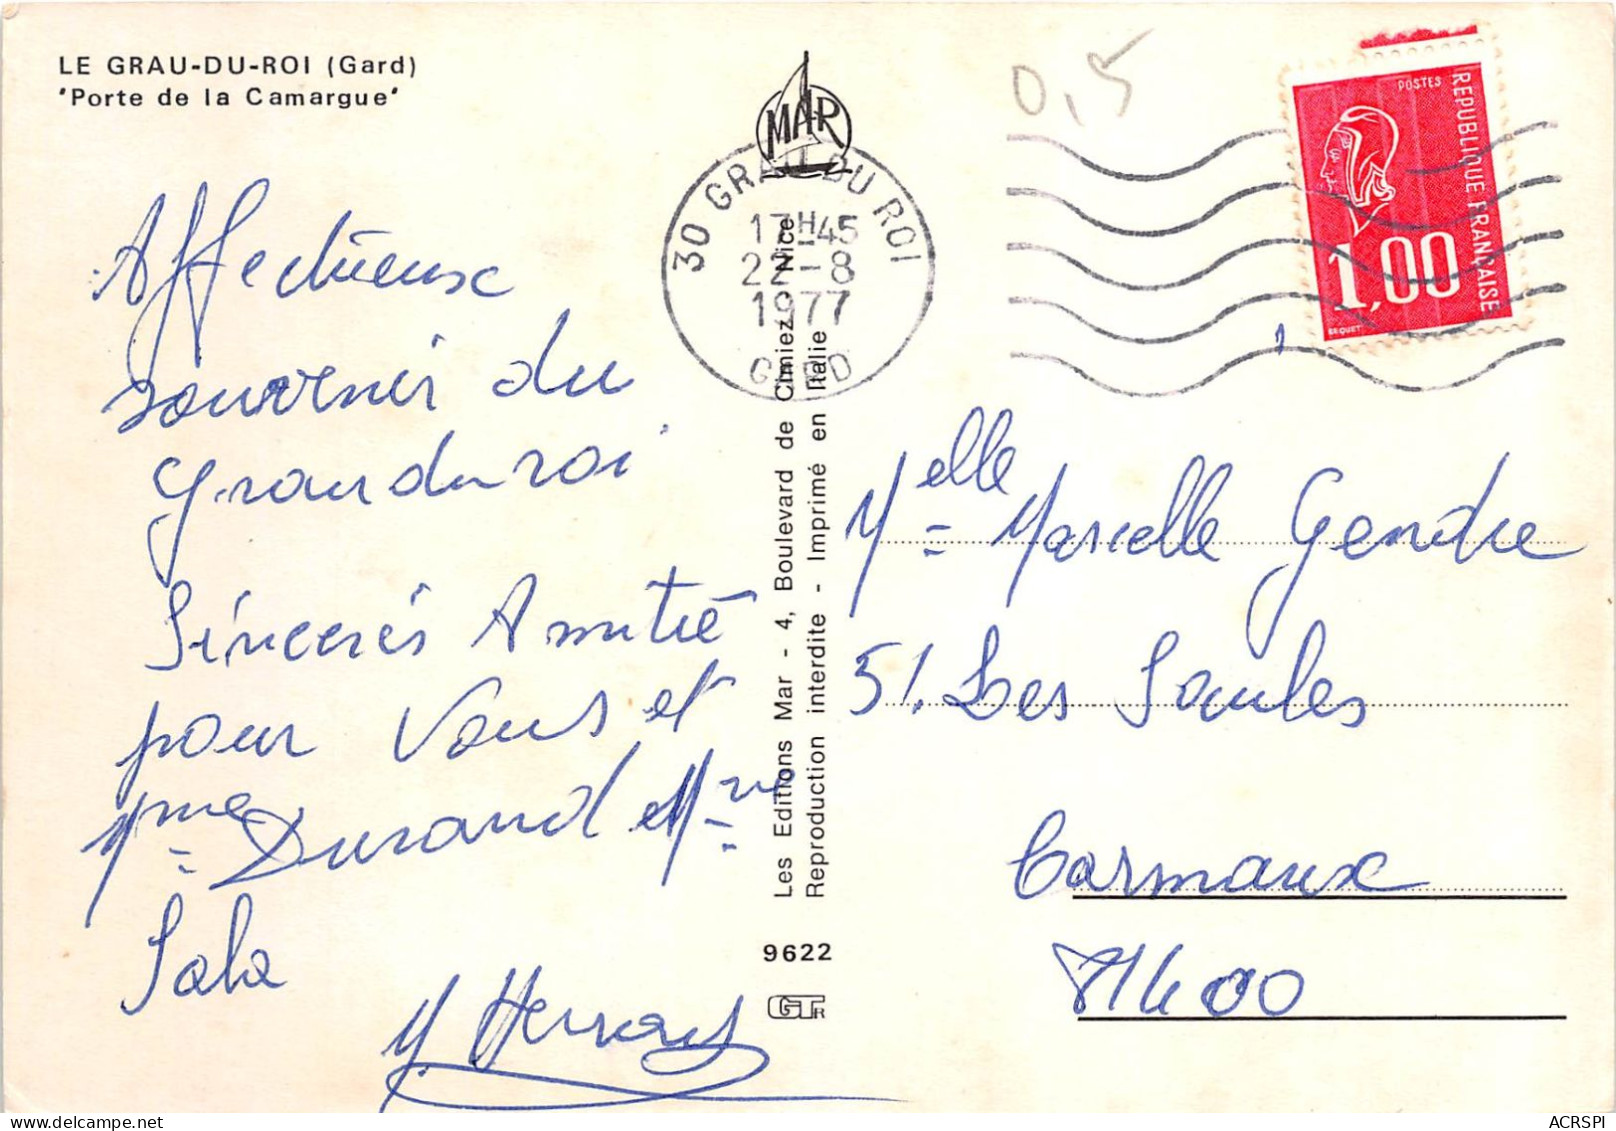 LE GRAU-DU-ROI (Gard)
"Porte de la Camargue"
MAR
0,5
30 GRAU DU ROI
17H45
22-8
1977
GARD
POSTES
REPUBLIQUE FRANÇAISE
1,00
BEQUET
Affectueux
souvenir du
Grau du roi
Sincerés Amitié
pour Vous et
Mme Durand et Mme
Sala
M. Herraut
Les Editions Mar - 4, Boulevard de Cimiez - Nice
Reproduction interdite - Imprimé en Italie
9622
GTR
Melle Marcelle Gendre
51. Les Saules
Carmaux
81400
ACRSPI